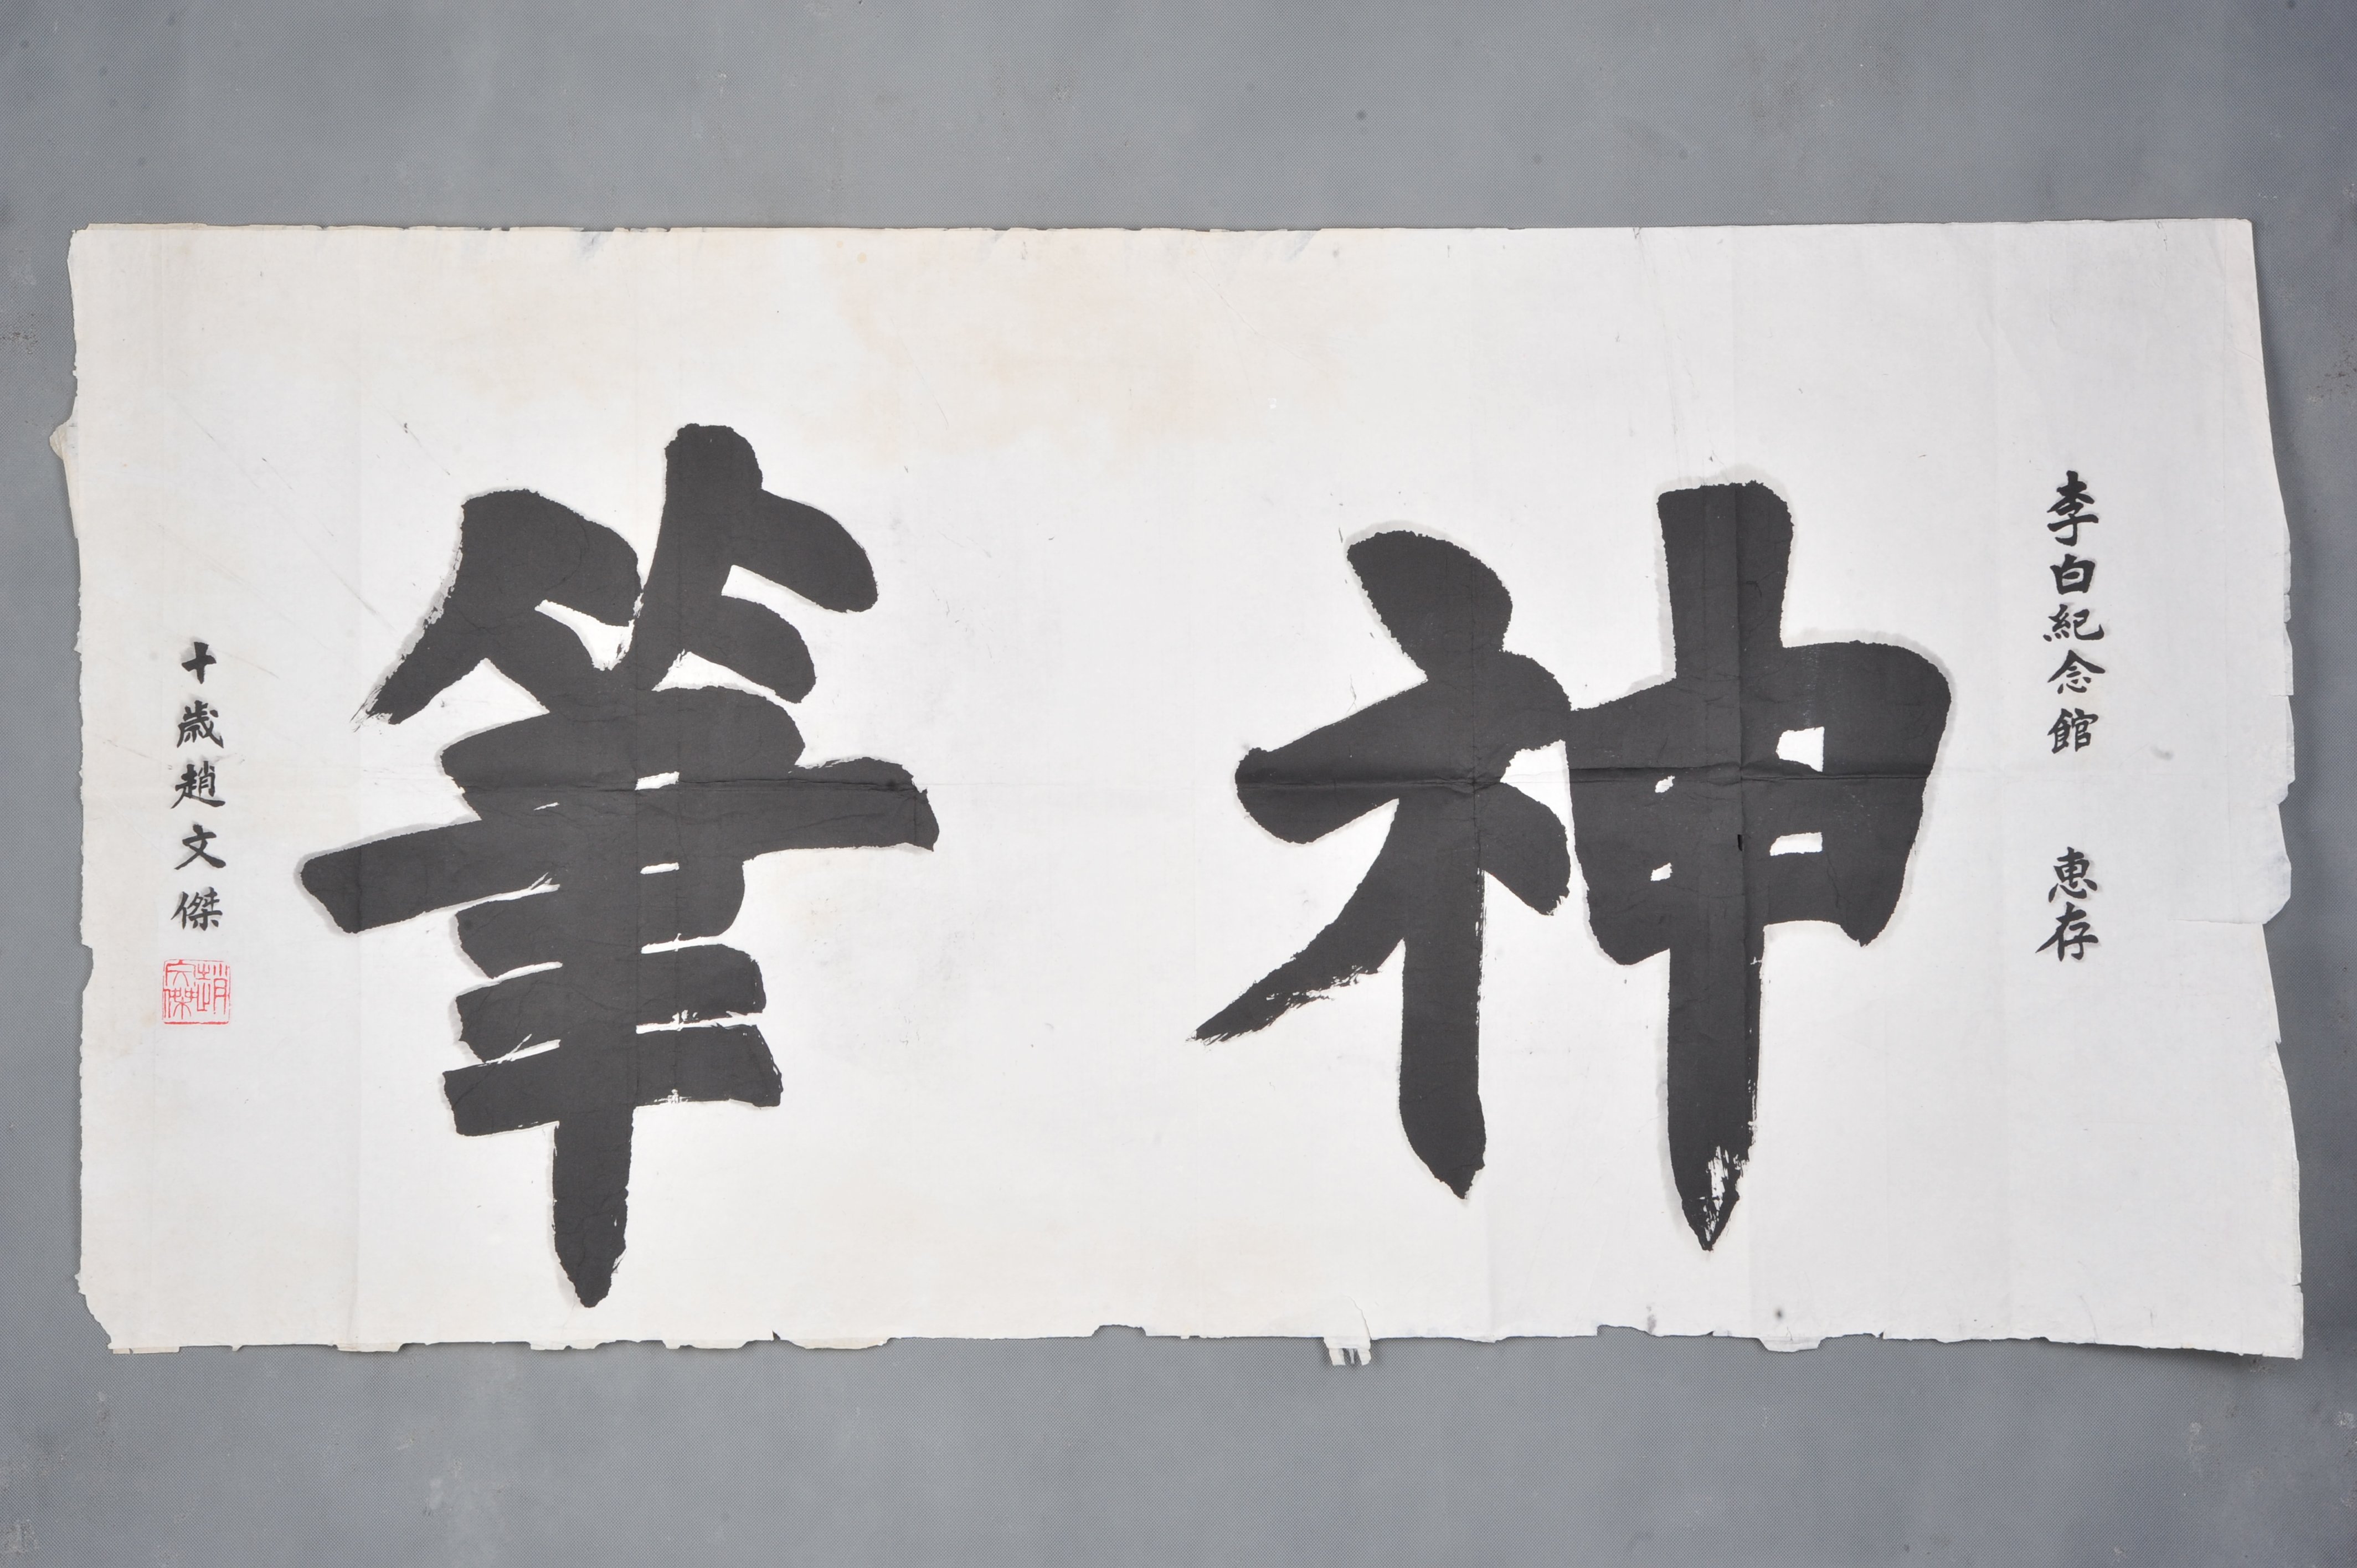 李白紀念館 惠存
神筆
十歲趙文傑
趙文傑